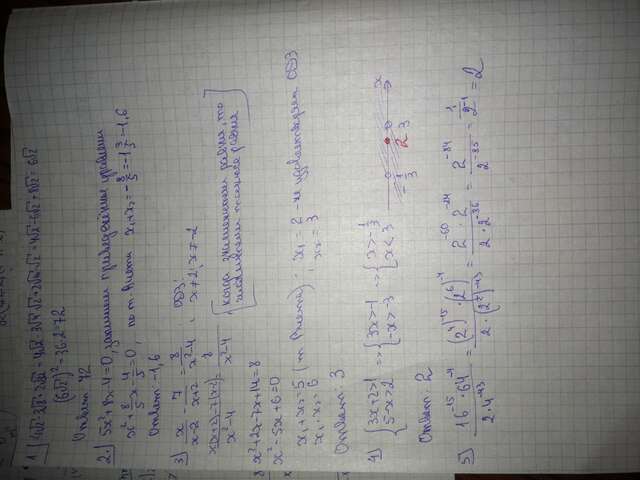 1) 4√2 - 3√8 + 2√32 = 4√2 - 3√4·√2 + 2√16·√2 = 4√2 - 6√2 + 8√2 = 6√2
(6√2)² = 36·2 = 72
Ответ: 72
2.) 5x² + 8x - 4 = 0, запишем приведённое уравнение
x² + 8/5 x - 4/5 = 0, по т. Виета x₁ + x₂ = -8/5 = -1 3/5 = -1,6
Ответ: -1,6
3) x/(x-2) - 7/(x+2) = 8/(x²-4), ОДЗ: x ≠ 2; x ≠ -2
(x(x+2) - 7(x-2))/(x²-4) = 8/(x²-4) [когда знаменатели равны, то числители тоже равны]
x² + 2x - 7x + 14 = 8
x² - 5x + 6 = 0
x₁ + x₂ = 5 (т. Виета) : x₁ = 2 - не удовлетворяет ОДЗ
x₁ · x₂ = 6 ; x₂ = 3
Ответ: 3
4) {3x + 2 > 1 => {3x > -1 => {x > -1/3
{5 - x > 2 {-x > -3 {x < 3
-1/3 2 3 x
Ответ: 2
5) (16⁻¹⁵ · 64⁻⁴)/(2·4⁻⁴³) = ((2⁴)⁻¹⁵ · (2⁶)⁻⁴)/(2·(2²)⁻⁴³) = (2⁻⁶⁰ · 2⁻²⁴)/(2·2⁻⁸⁶) = 2⁻⁸⁴/2⁻⁸⁵ = 1/2⁻¹ = 2